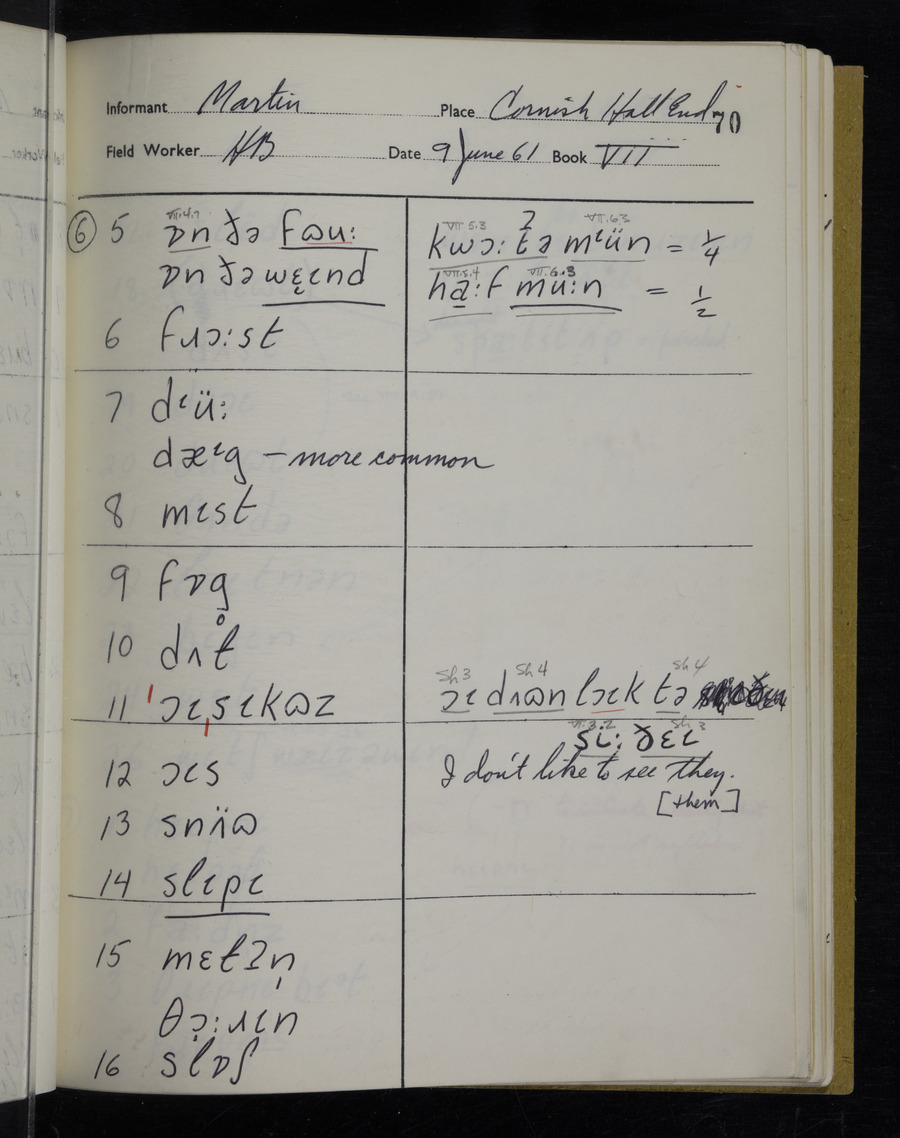 Informant Martin Place Cornish Hall End 70
Field Worker HB Date 9 June 61 Book VII
⑥ 5 VII.4.7 ɒn ðə fɷu:
ɒn ðə wɛɩnd
6 fɹɔ:st
7 dɩü:
dæɩg – more common
8 mɩst
9 fɒg
10 dʌt̥
11 ˈɔɩˌsɩkɷz
12 ɔɩs
13 snʌ̈ɷ
14 slɩpɩ
15 mɛtʔn̩
θɔ̣:ɹɩn
16 slɒʃ
VII 5.3 VII.6.3
kwɔ: tə mɩün = ¼
VII.5.4 VII.6.3
ha:f mu:n = ½
Sh3 Sh4 Sh4
ɔɩ dʌɷn lɔɩk tə
VI.3.2 Sh3
si: ðɛɩ
I don't like to see they.
[them]